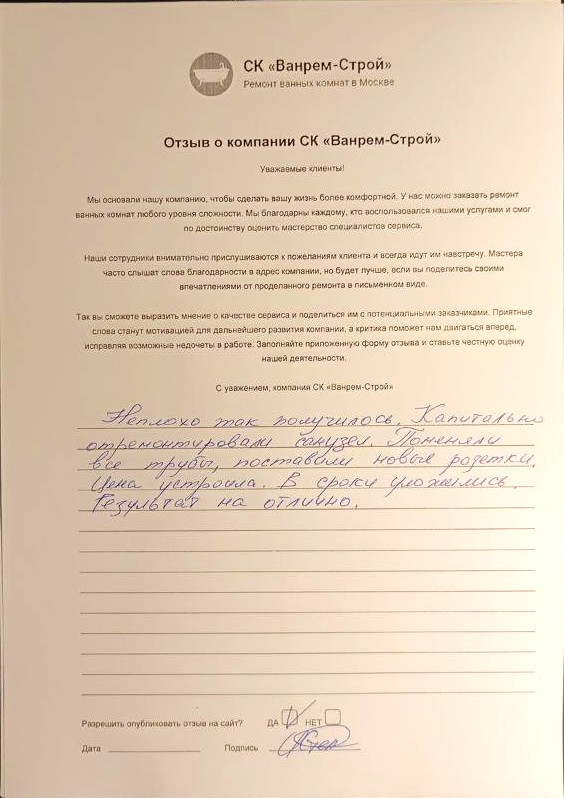 СК «Ванрем-Строй»
Ремонт ванных комнат в Москве
Отзыв о компании СК «Ванрем-Строй»
Уважаемые клиенты!
Мы основали нашу компанию, чтобы сделать вашу жизнь более комфортной. У нас можно заказать ремонт
ванных комнат любого уровня сложности. Мы благодарны каждому, кто воспользовался нашими услугами и смог
по достоинству оценить мастерство специалистов сервиса.
Наши сотрудники внимательно прислушиваются к пожеланиям клиента и всегда идут им навстречу. Мастера
часто слышат слова благодарности в адрес компании, но будет лучше, если вы поделитесь своими
впечатлениями от проделанного ремонта в письменном виде.
Так вы сможете выразить мнение о качестве сервиса и поделиться им с потенциальными заказчиками. Приятные
слова станут мотивацией для дальнейшего развития компании, а критика поможет нам двигаться вперед,
исправляя возможные недочеты в работе. Заполняйте приложенную форму отзыва и ставьте честную оценку
нашей деятельности.
С уважением, компания СК «Ванрем-Строй»
Неплохо так получилось. Капитально
отремонтировали санузел. Поменяли
все трубы, поставили новые розетки.
Цена устроила. В сроки уложились.
Результат на отлично.
Разрешить опубликовать отзыв на сайт? ДА НЕТ
Дата Подпись